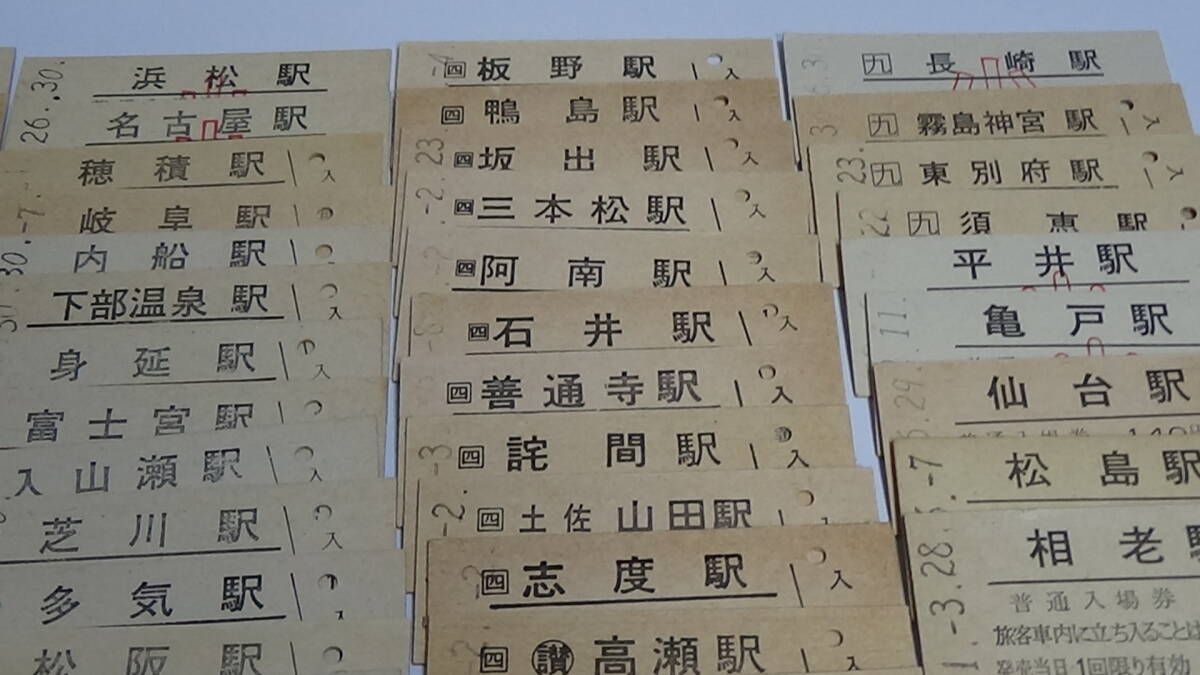 浜松駅
26.-30.
名古屋駅
穂積駅 入
岐阜駅
-7.
内船駅
30.
下部温泉駅 入
身延駅 入
富士宮駅
入山瀬駅
芝川駅 入
多気駅
松阪駅
-4
四 板野駅 入
四 鴨島駅
四 坂出駅
-2.23
四 三本松駅 入
四 阿南駅 入
四 石井駅 入
四 善通寺駅 入
四 詫間駅 入
-3
四 土佐山田駅
-2.
四 志度駅 入
-2
四 讃 高瀬駅 入
九 長崎駅
九 霧島神宮駅 入
23.
九 東別府駅 入
22
九 須恵駅
平井駅
11.
亀戸駅
仙台駅
29.
普通入場券 140
松島駅
-7
相老駅
-3.28
普通入場券
旅客車内に立ち入ることは
発売当日1回限り有効